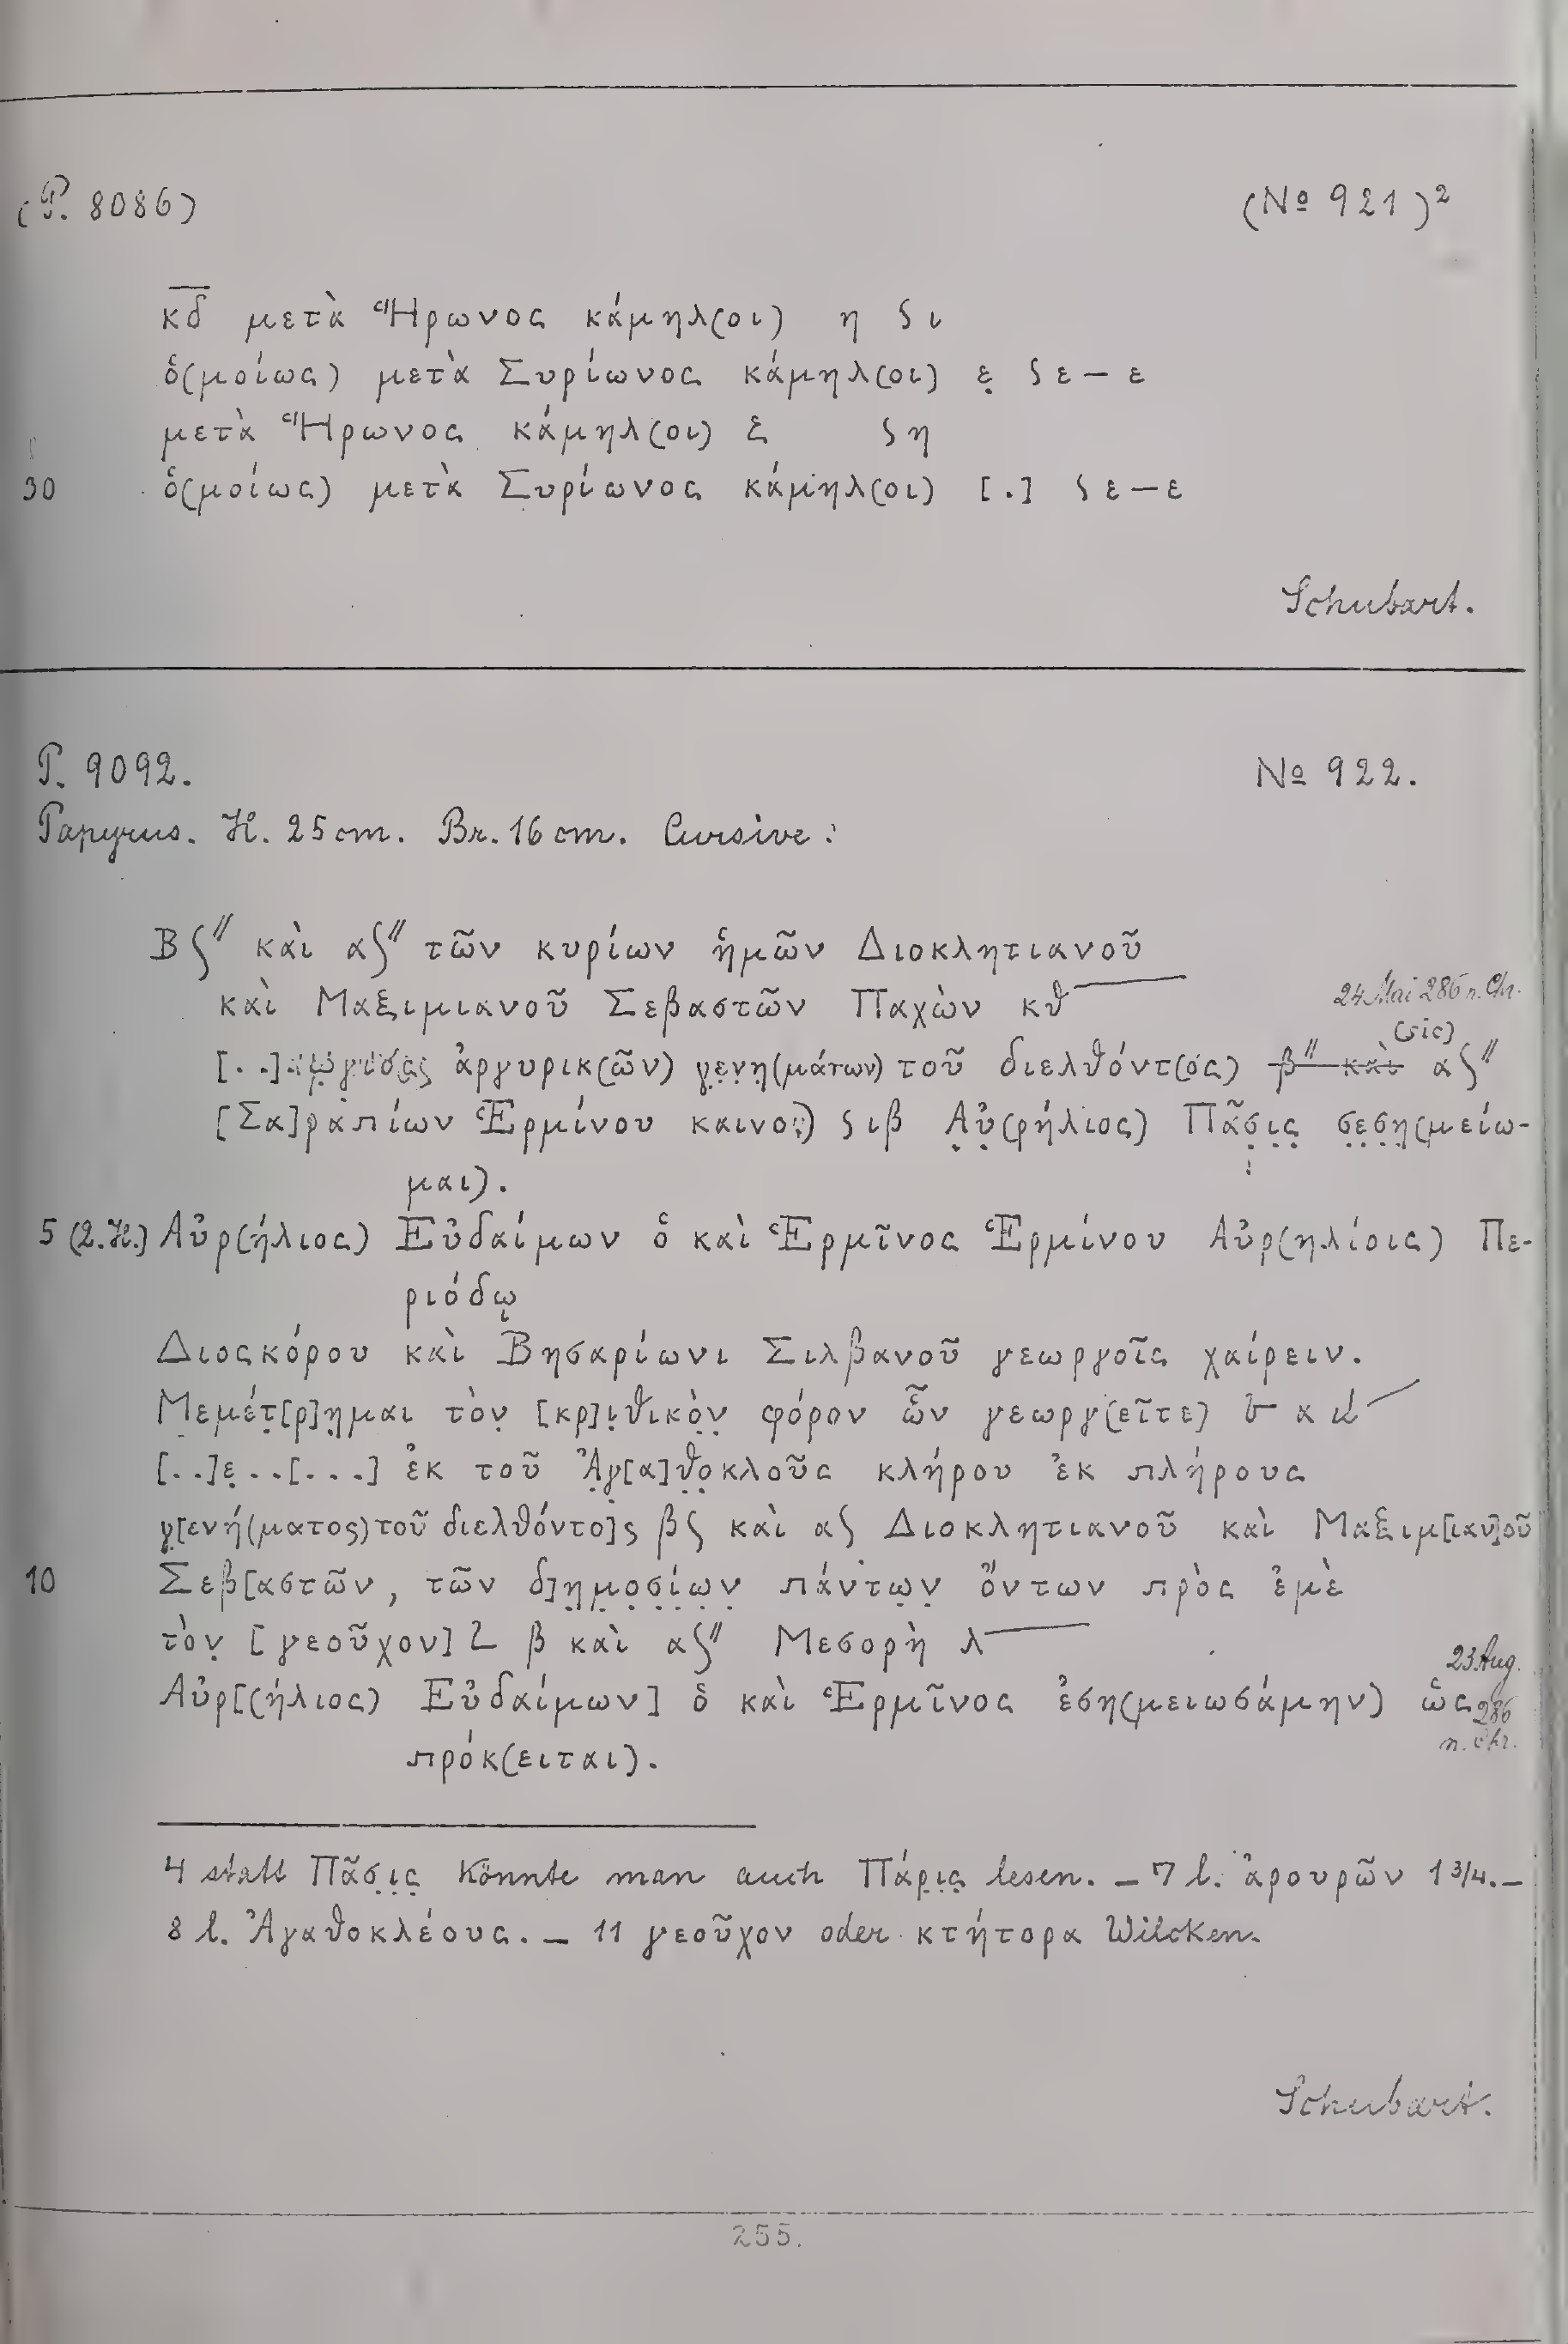 (P. 8086) (No 921)²
κ̅δ̅ μετὰ Ἥρωνος κάμηλ(οι) η ϛ ι
ὁ(μοίως) μετὰ Συρίωνος κάμηλ(οι) ε̣ ϛ ε – ε
μετὰ Ἥρωνος κάμηλ(οι) ξ ϛ η
30 ὁ(μοίως) μετὰ Συρίωνος κάμηλ(οι) [.] ϛ ε – ε
Schubart.
P. 9092. No 922.
Papyrus. H. 25 cm. Br. 16 cm. Cursive:
Βϛ″ καὶ αϛ″ τῶν κυρίων ἡμῶν Διοκλητιανοῦ
καὶ Μαξιμιανοῦ Σεβαστῶν Παχὼν κθ
24 Mai 286 n. Chr.
(sic)
[..] ἀργυρικ(ῶν) γ̣ε̣ν̣η(μάτων) τοῦ διελθόντ(ος) β″ καὶ αϛ″
[Σα]ραπίων Ἑρμίνου καινο(̣) ϛ ιβ Α̣ὐ̣(ρήλιος) Πᾶσ̣ι̣ς̣ σ̣ε̣ση̣(μείω-
μαι).
5 (2.H.) Αὐρ(ήλιος) Εὐδαίμων ὁ καὶ Ἑρμῖνος Ἑρμίνου Αὐρ(ηλίοις) Πε-
ριόδῳ
Διοςκόρου καὶ Βησαρίωνι Σιλβανοῦ γεωργοῖς χαίρειν.
Μεμέτ̣[ρ]η̣μαι τὸν̣ [κρ]ι̣θικὸ̣ν̣ φόρον ὧν γεωργ(εῖτε)
[..]ε̣..[...] ἐκ τοῦ Ἀ̣γ[α]θ̣ο̣κλοῦς κλήρου ἐκ πλήρους
γ̣[ενή(ματος) τοῦ διελθόντο]ς βϛ καὶ αϛ Διοκλητιανοῦ καὶ Μαξιμ[ιαν]οῦ
10 Σεβ[αστῶν, τῶν δ]η̣μ̣ο̣σ̣ί̣ω̣ν̣ πάντω̣ν̣ ὄντων πρὸς ἐμὲ
τὸν̣ [γεοῦχον] L β καὶ αϛ″ Μεσορὴ λ
23 Aug.
Αὐρ[(ήλιος) Εὐδαίμων] ὁ καὶ Ἑρμῖνος ἐση(μειωσάμην) ὡς
286
πρόκ(ειται).
n. Chr.
4 statt Πᾶσ̣ι̣ς̣ könnte man auch Πάρ̣ι̣ς̣ lesen. – 7 l. ἀρουρῶν 1 3/4. –
8 l. Ἀγαθοκλέους. – 11 γεοῦχον oder κτήτορα Wilcken.
Schubart.
255.